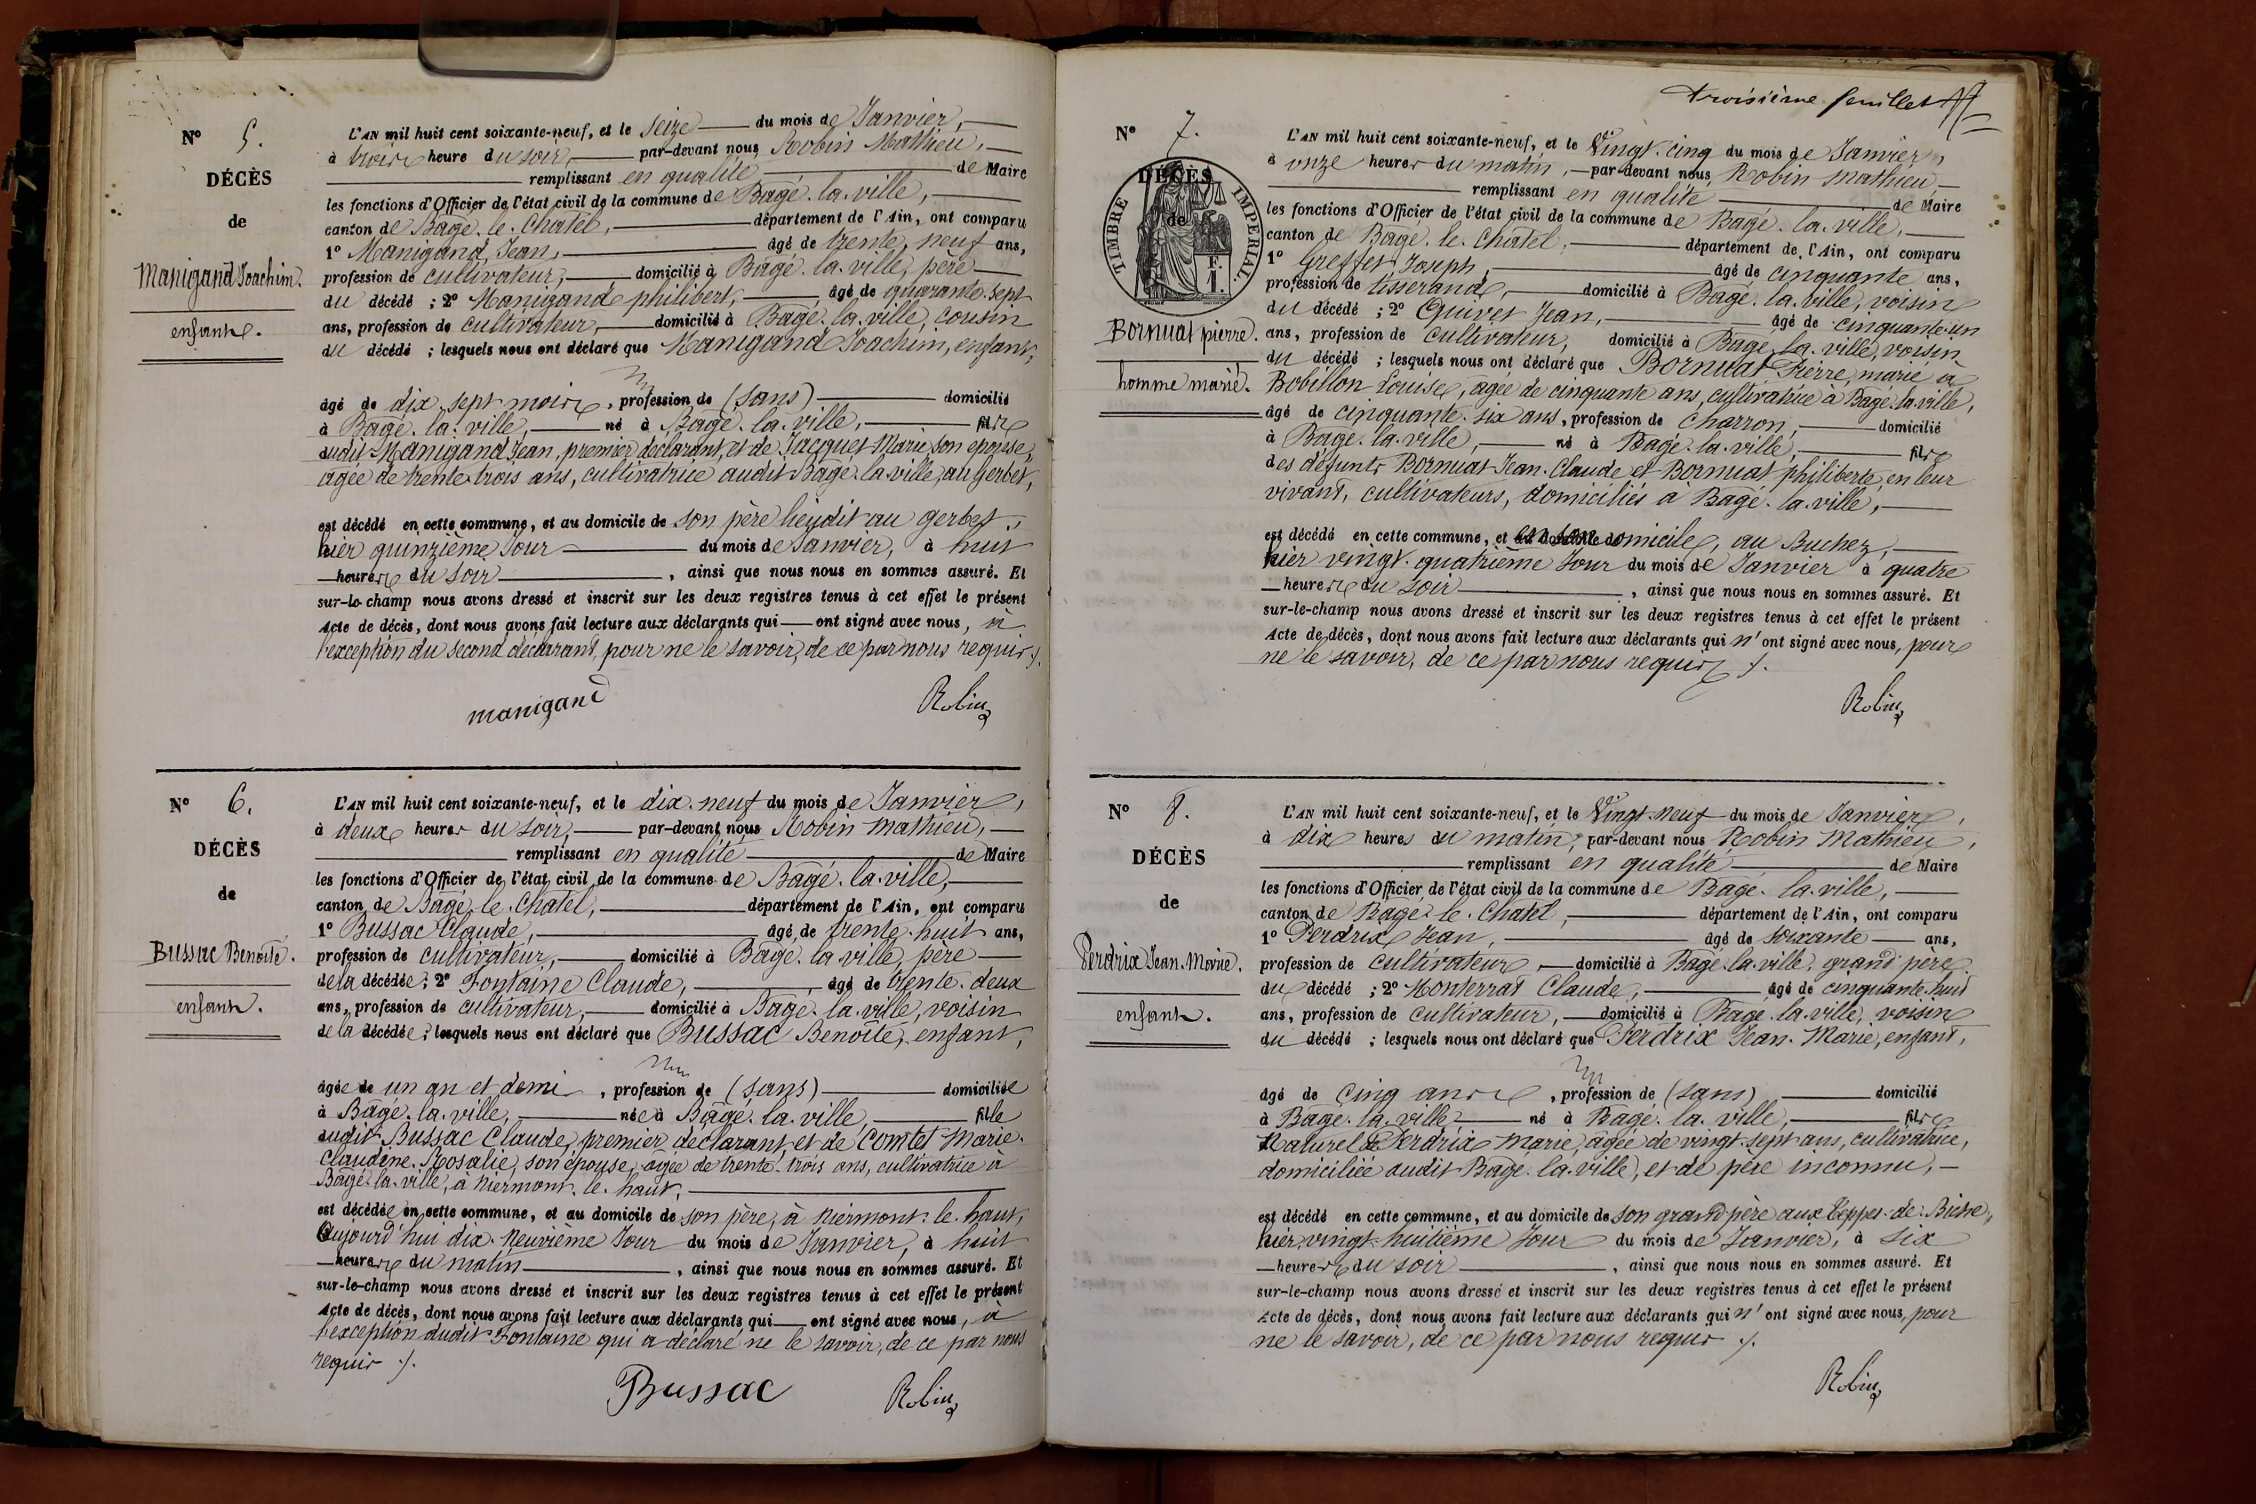 N° 5.
DÉCÈS
de
Manigand Joachim.
enfant.
L'AN mil huit cent soixante-neuf, et le seize du mois de Janvier,
à trois heure du soir, par-devant nous Robin Mathieu,
remplissant en qualité de Maire
les fonctions d'Officier de l'état civil de la commune de Bagé-la-ville,
canton de Bagé-le-Chatel, département de l'Ain, ont comparu
1° Manigand Jean, âgé de trente-neuf ans,
profession de cultivateur, domicilié à Bagé-la-ville, père
du décédé ; 2° Manigand philibert, âgé de quarante-sept
ans, profession de cultivateur, domicilié à Bagé-la-ville, cousin
du décédé ; lesquels nous ont déclaré que Manigand Joachim, enfant,
âgé de dix-sept mois, profession de (sans) domicilié
à Bagé-la-ville, né à Bagé-la-ville, fils
dudit Manigand Jean, premier déclarant, et de Jacquet Marie son épouse,
agée de trente-trois ans, cultivatrice audit Bagé-la-ville, au Gerbet,
est décédé en cette commune, et au domicile de son père lieudit au gerbet,
hier quinzième Jour du mois de Janvier, à huit
heures du soir, ainsi que nous nous en sommes assuré. Et
sur-le-champ nous avons dressé et inscrit sur les deux registres tenus à cet effet le présent
Acte de décès, dont nous avons fait lecture aux déclarants qui ont signé avec nous, à
l'exception du second déclarant, pour ne le savoir, de ce par nous requis ./.
manigand Robin
N° 6.
DÉCÈS
de
Bussac Benoîte.
enfant.
L'AN mil huit cent soixante-neuf, et le dix-neuf du mois de Janvier,
à deux heures du soir, par-devant nous Robin Mathieu,
remplissant en qualité de Maire
les fonctions d'Officier de l'état civil de la commune de Bagé-la-ville,
canton de Bagé-le-Chatel, département de l'Ain, ont comparu
1° Bussac Claude, âgé de trente-huit ans,
profession de cultivateur, domicilié à Bagé-la-ville, père
de la décédée ; 2° Fontaine Claude, âgé de trente-deux
ans, profession de cultivateur, domicilié à Bagé-la-ville, voisin
de la décédée ; lesquels nous ont déclaré que Bussac Benoîte, enfant,
âgée de un an et demi, profession de (sans) domiciliée
à Bagé-la-ville, née à Bagé-la-ville, fille
dudit Bussac Claude, premier déclarant, et de Comtet Marie-
Claudine-Rosalie, son épouse, agée de trente-trois ans, cultivatrice à
Bagé-la-ville, à niermont-le-haut,
est décédée en cette commune, et au domicile de son père, à niermont-le-haut,
Aujourd'hui dix-neuvième Jour du mois de Janvier, à huit
heures du matin, ainsi que nous nous en sommes assuré. Et
sur-le-champ nous avons dressé et inscrit sur les deux registres tenus à cet effet le présent
Acte de décès, dont nous avons fait lecture aux déclarants qui ont signé avec nous, à
l'exception dudit Fontaine qui a déclaré ne le savoir, de ce par nous
requis ./.
Bussac Robin
troisième feuillet
N° 7.
DÉCÈS
de
TIMBRE IMPERIAL.
F.
1.
Bornuat pierre.
homme marié.
L'AN mil huit cent soixante-neuf, et le Vingt-cinq du mois de Janvier,
à onze heures du matin, par-devant nous Robin mathieu,
remplissant en qualité de Maire
les fonctions d'Officier de l'état civil de la commune de Bagé-la-ville,
canton de Bagé-le-Chatel, département de l'Ain, ont comparu
1° Greffet Joseph, âgé de cinquante ans,
profession de tisserand, domicilié à Bagé-la-ville, voisin
du décédé ; 2° Quivet Jean, âgé de cinquante-un
ans, profession de cultivateur, domicilié à Bagé-la-ville, voisin
du décédé ; lesquels nous ont déclaré que Bornuat Pierre, marié à
Bobillon Louise, agée de cinquante ans, cultivatrice à Bagé-la-ville,
âgé de cinquante-six ans, profession de Charron, domicilié
à Bagé-la-ville, né à Bagé-la-ville, fils
des défunts Bornuat Jean-Claude et Bornuat philiberte, en leur
vivant, cultivateurs, domiciliés à Bagé-la-ville,
est décédé en cette commune, et en son domicile, au Buchez,
hier vingt-quatrième Jour du mois de Janvier à quatre
heures du soir, ainsi que nous nous en sommes assuré. Et
sur-le-champ nous avons dressé et inscrit sur les deux registres tenus à cet effet le présent
Acte de décès, dont nous avons fait lecture aux déclarants qui n'ont signé avec nous, pour
ne le savoir, de ce par nous requis ./.
Robin
N° 8.
DÉCÈS
de
Perdrix Jean-Marie.
enfant.
L'AN mil huit cent soixante-neuf, et le Vingt-neuf du mois de Janvier,
à dix heures du matin, par-devant nous Robin Mathieu,
remplissant en qualité de Maire
les fonctions d'Officier de l'état civil de la commune de Bagé-la-ville,
canton de Bagé-le-Chatel, département de l'Ain, ont comparu
1° Perdrix Jean, âgé de soixante ans,
profession de cultivateur, domicilié à Bagé-la-ville, grand père
du décédé ; 2° Monterrat Claude, âgé de cinquante-huit
ans, profession de cultivateur, domicilié à Bagé-la-ville, voisin
du décédé ; lesquels nous ont déclaré que Perdrix Jean-Marie, enfant,
âgé de cinq ans, profession de (sans) domicilié
à Bagé-la-ville né à Bagé-la-ville, fils
Naturel de Perdrix Marie, âgée de vingt-sept ans, cultivatrice,
domiciliée audit Bagé-la-ville, et de père inconnu,
est décédé en cette commune, et au domicile de son grand-père aux Teppes-de-Biche,
hier vingt-huitième Jour du mois de Janvier, à six
heures du soir, ainsi que nous nous en sommes assuré. Et
sur-le-champ nous avons dressé et inscrit sur les deux registres tenus à cet effet le présent
Acte de décès, dont nous avons fait lecture aux déclarants qui n'ont signé avec nous, pour
ne le savoir, de ce par nous requis ./.
Robin